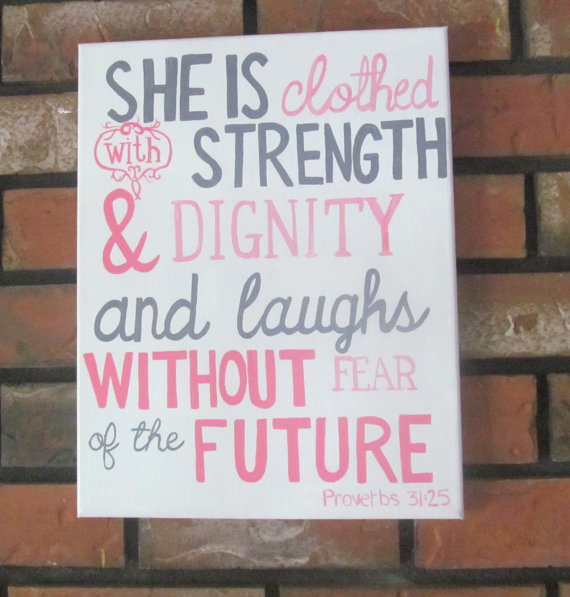 SHE IS clothed
with STRENGTH
& DIGNITY
and laughs
WITHOUT FEAR
of the FUTURE
Proverbs 31:25